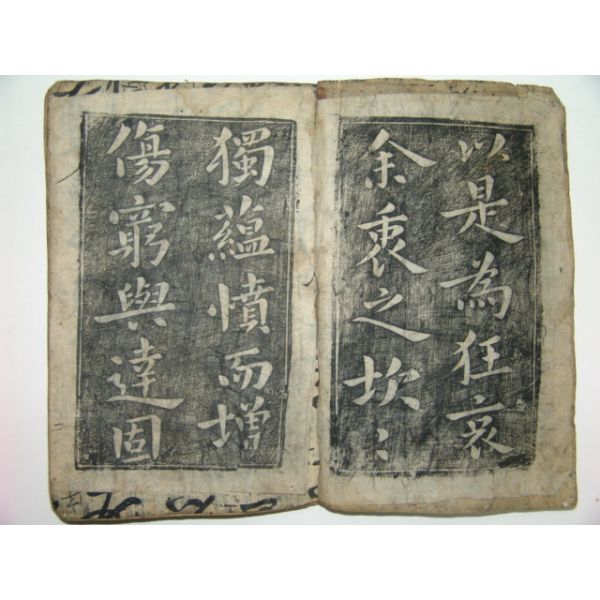 以是為狂哀
余衷之坎〻
獨蘊憤而增
傷窮與達固